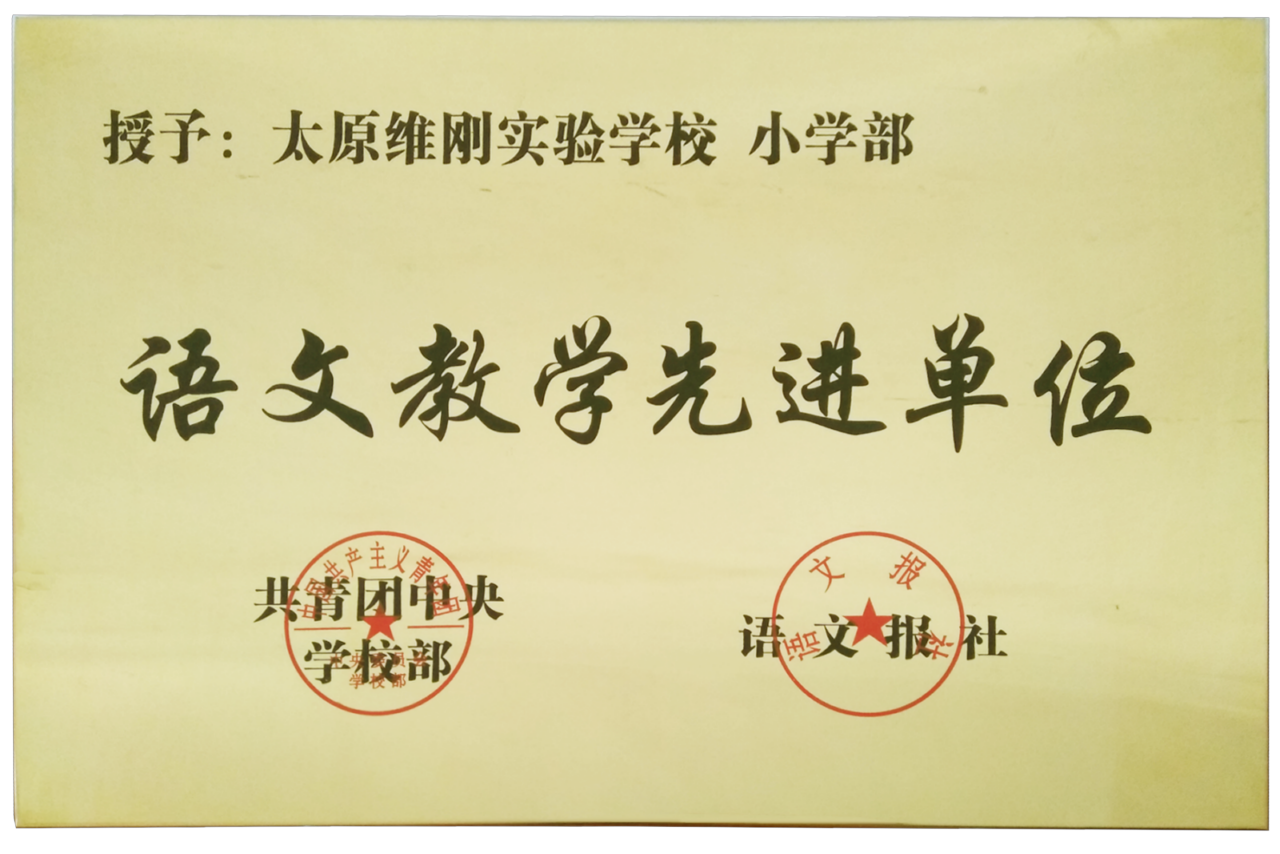 授予：太原维刚实验学校 小学部
语文教学先进单位
共青团中央
学校部
中国共产主义青年团
中央委员会
学校部
语文报社
语文报社